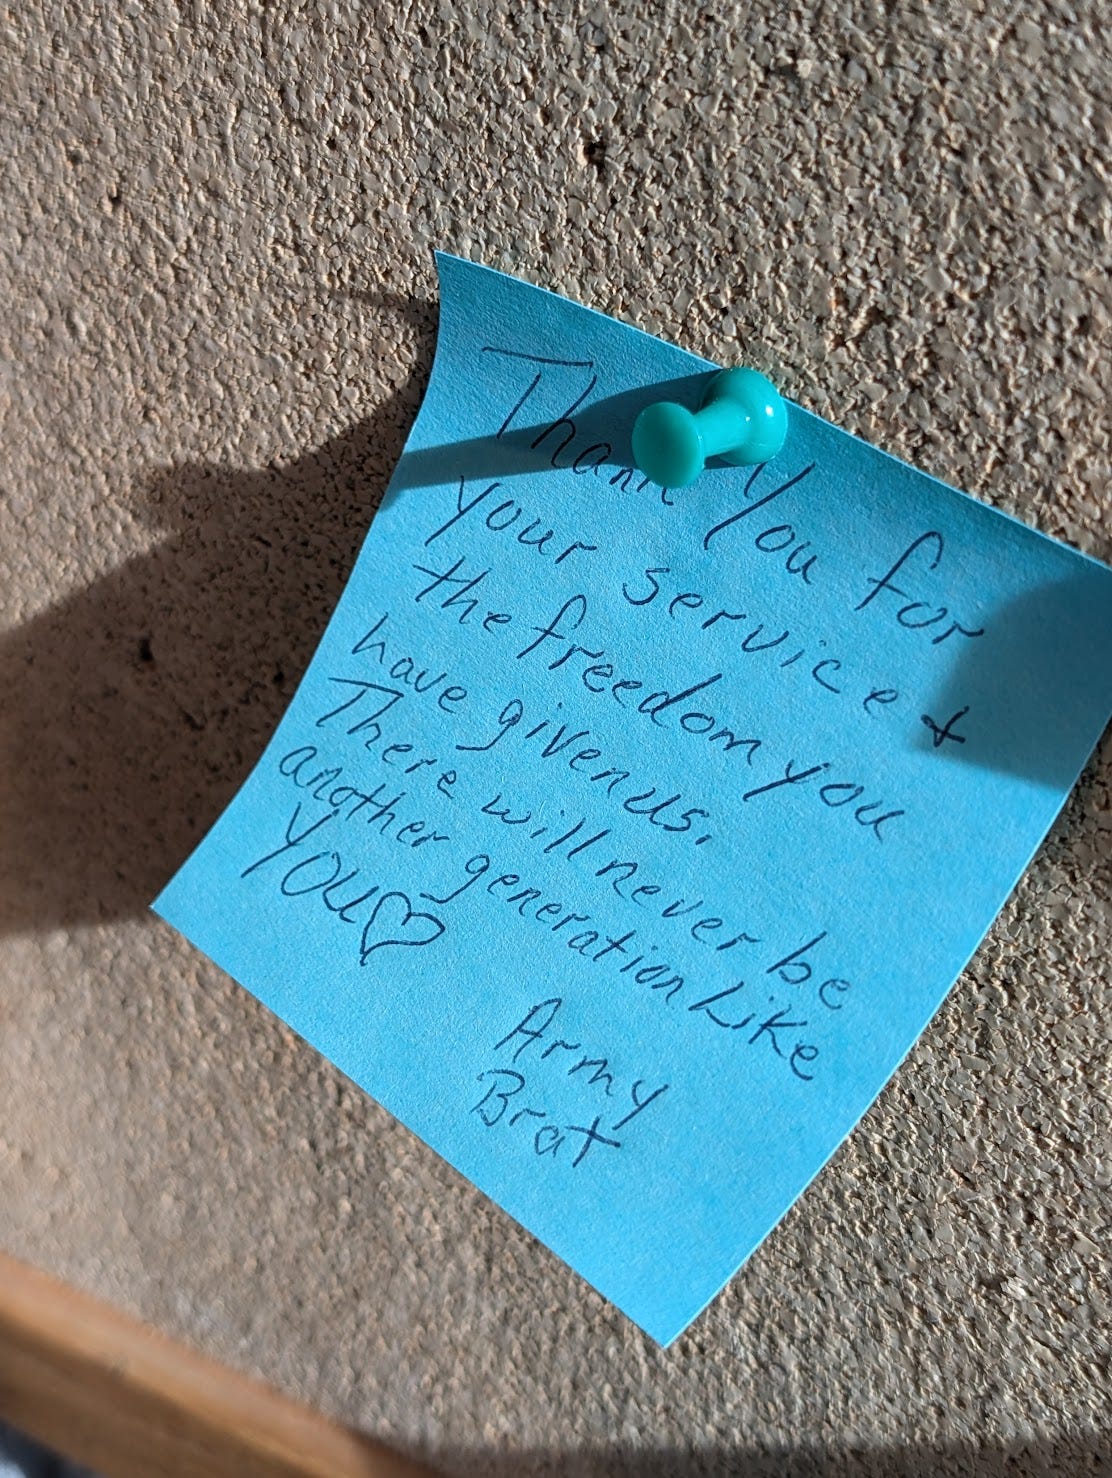 Thank You for
your service &
the freedom you
have given us.
There will never be
another generation Like
YOU♡
Army
Brat